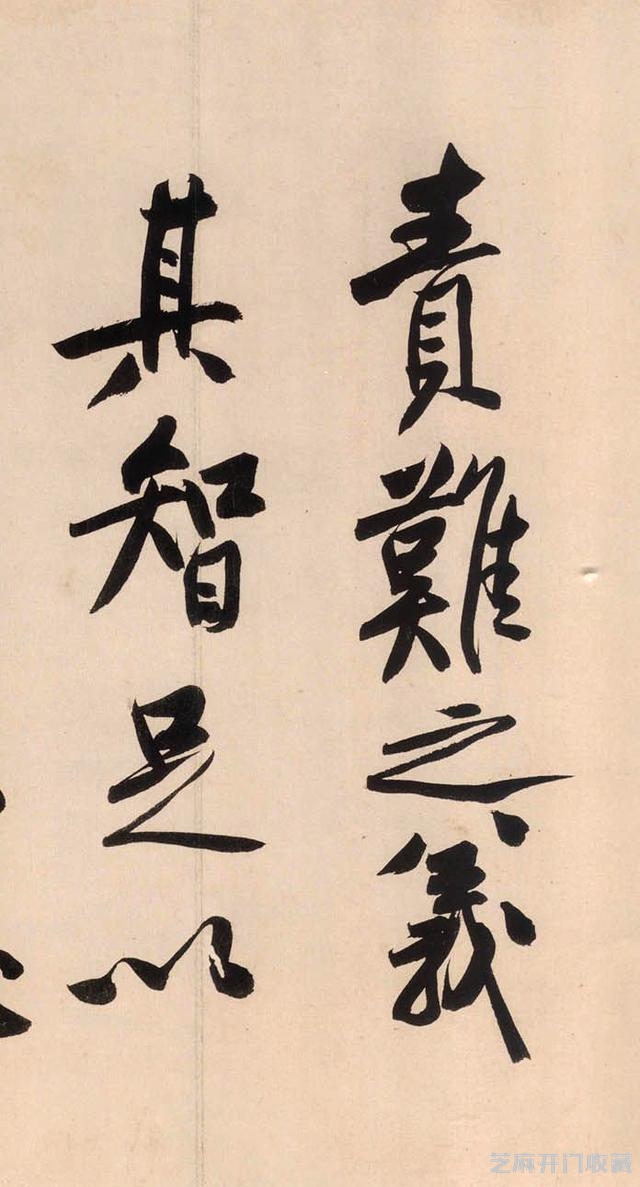 責難之義
其智足以
芝麻开门收藏